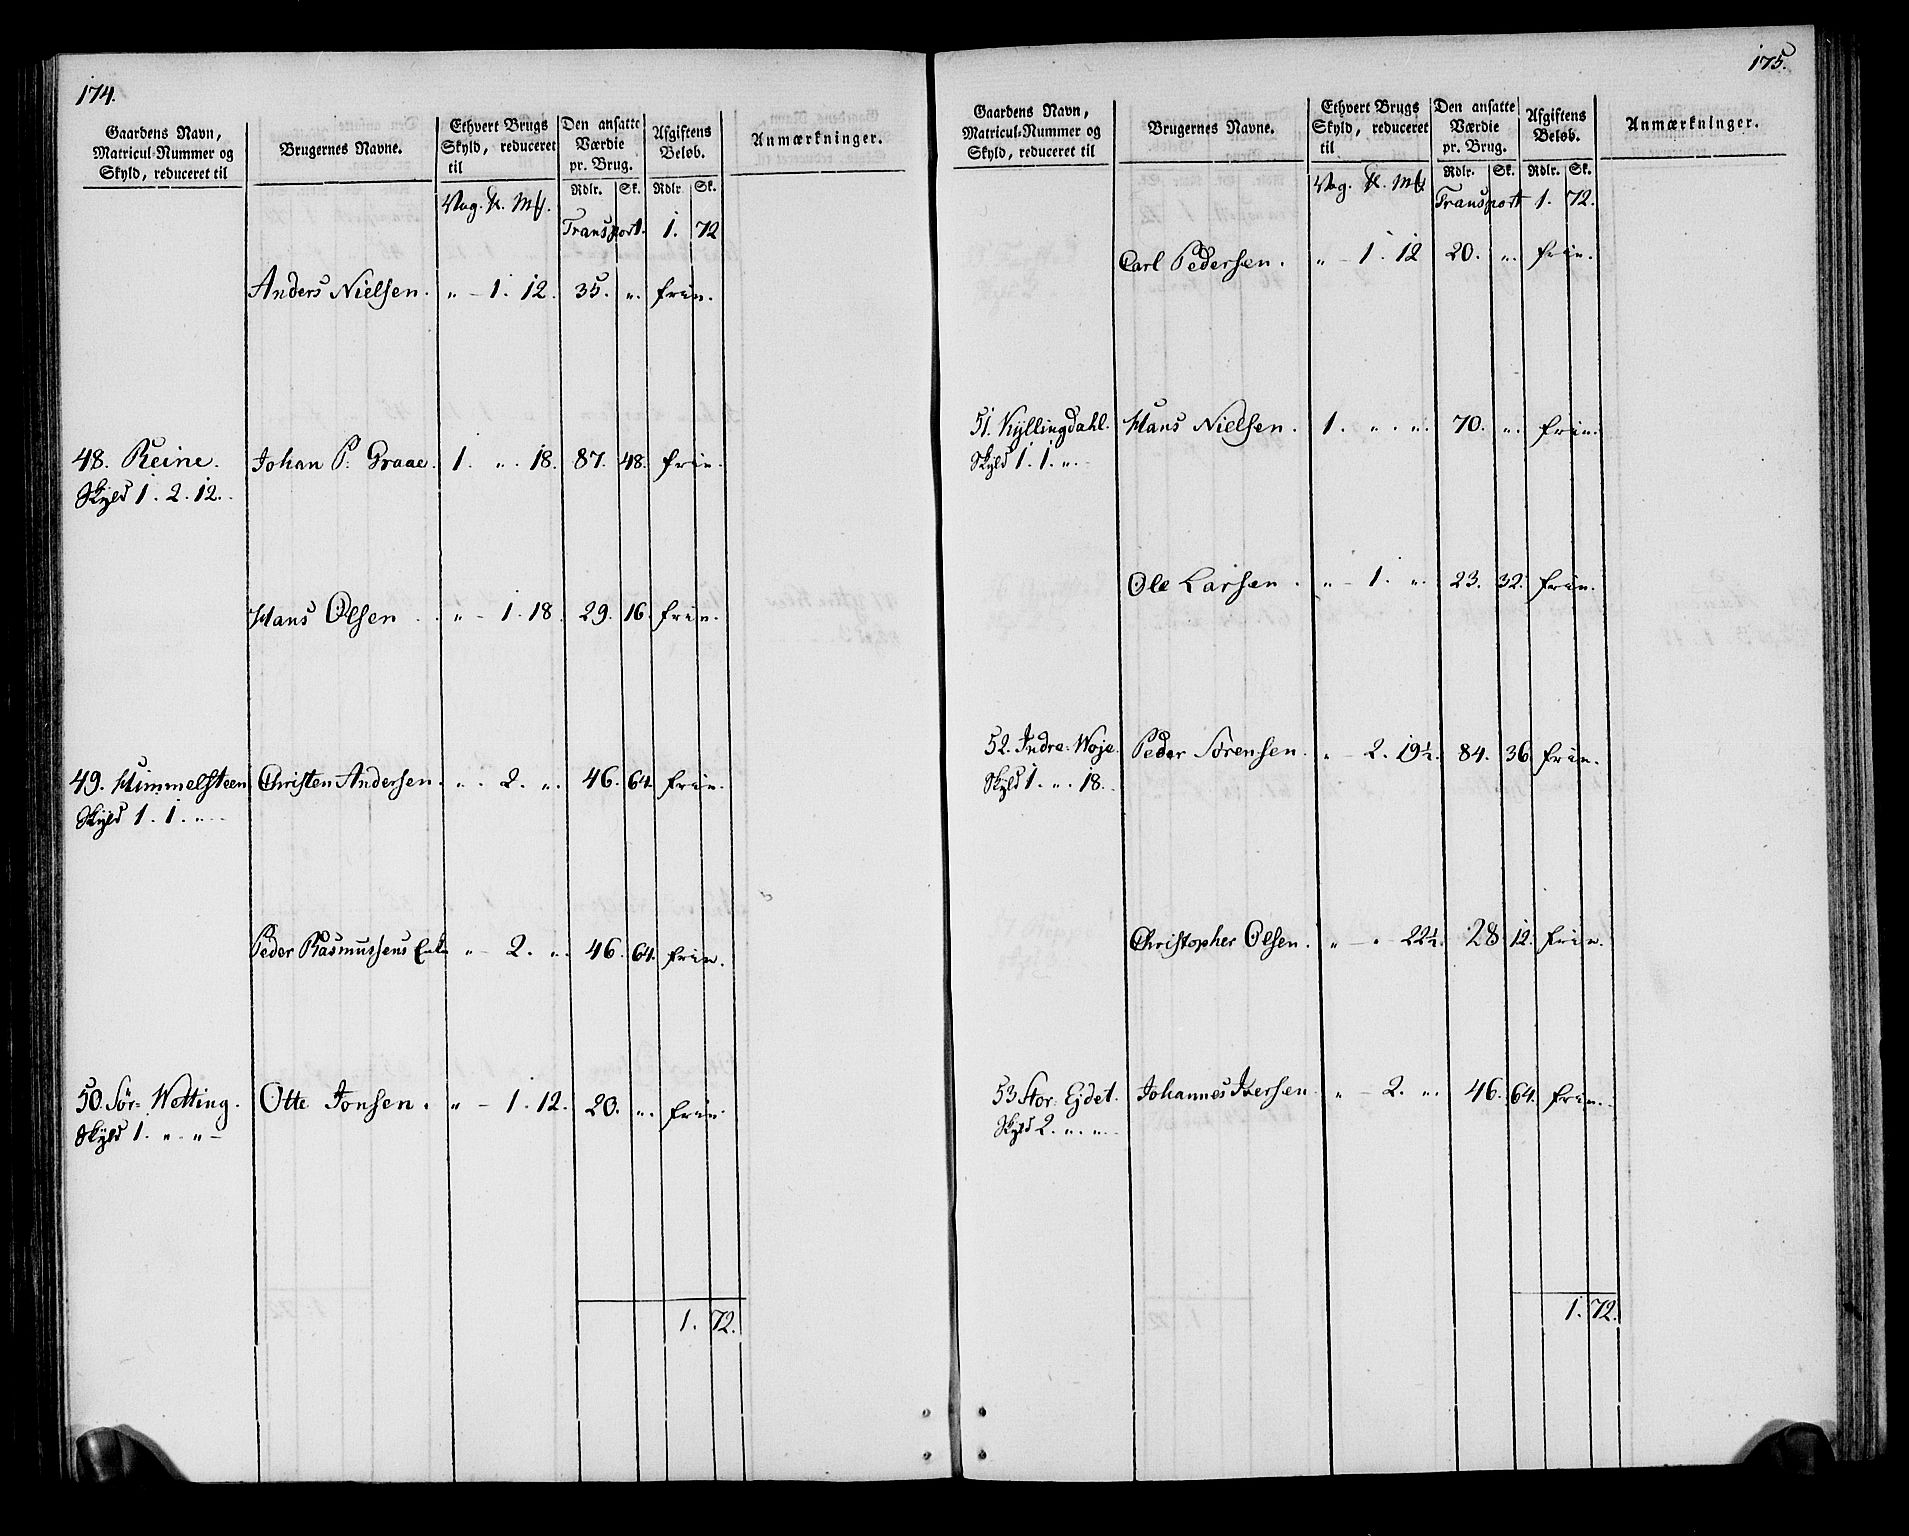 174.
Gaardens Navn, Matricul-Nummer og Skyld, reduceret til
Brugernes Navne.
Ethvert Brugs Skyld, reduceret til
Den ansatte Værdie pr. Brug.
Afgiftens Beløb.
Anmærkninger.
Rdlr. Sk. Rdlr. Sk.
Vog.
Transport. 1. 72
Anders Nielsen. „ - 1. 12. 35. „. frie.
48. Reine. Johan P. Graae. 1. „. 18. 87. 48. frie.
Skyld 1. 2. 12.
Hans Olsen . . „ - 1. 18. 29. 16. frie.
49. Himmelsteen Christen Andersen. „ . 2. „. 46. 64. frie.
Skyld 1. 1. „.
Peder Rasmussens Enke „ - 2. „. 46. 64. frie.
50. Sør- Wetting. Otte Jonsen. „ - 1. 12. 20. „. frie.
Skyld 1. „. „ -
1. 72.
175.
Gaardens Navn, Matricul-Nummer og Skyld, reduceret til
Brugernes Navne.
Ethvert Brugs Skyld, reduceret til
Den ansatte Værdie pr. Brug.
Afgiftens Beløb.
Anmærkninger.
Rdlr. Sk. Rdlr. Sk.
Vog.
Transport 1. 72.
Carl Pedersen. „ - 1. 12 20. „. frie.
51. Kyllingdahl. Hans Nielsen. 1. „. „. 70. „. frie.
Skyld 1. 1. „.
Ole Larsen . „ - 1. „. 23. 32. frie.
52. Indre- Woje. Peder Sörensen. „ - 2. 19½. 84. 36 frie.
Skyld 1. „. 18.
Christopher Olsen. „ - „. 22½. 28 12. frie.
53 Stor- Ejdet. Johannes Iversen. „ - 2. „. 46. 64. frie.
Skyld 2. „. „.
1. 72.